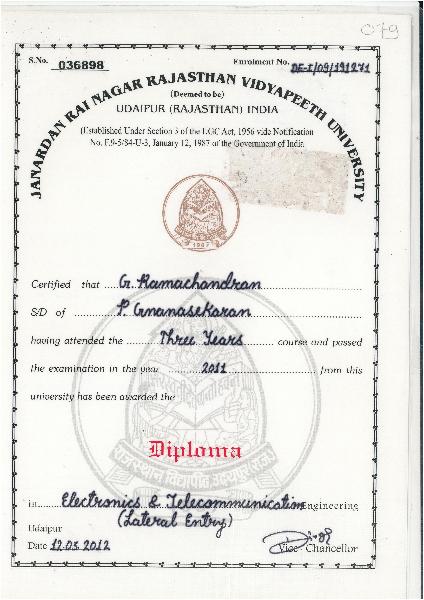 079
S.No. 036898 Enrolment No. DE-I/09/191271
JANARDAN RAI NAGAR RAJASTHAN VIDYAPEETH UNIVERSITY
(Deemed to be)
UDAIPUR (RAJASTHAN) INDIA
(Established Under Section 3 of the UGC Act, 1956 vide Notification
No. F.9-5/84-U-3, January 12, 1987 of the Government of India
1987
Certified that G. Ramachandran
S/D of P. Gnanasekaran
having attended the Three Years course and passed
the examination in the year 2011 from this
university has been awarded the
Diploma
in Electronics & Telecommunication Engineering
(Lateral Entry)
Udaipur
Date 12.03.2012 Vice-Chancellor